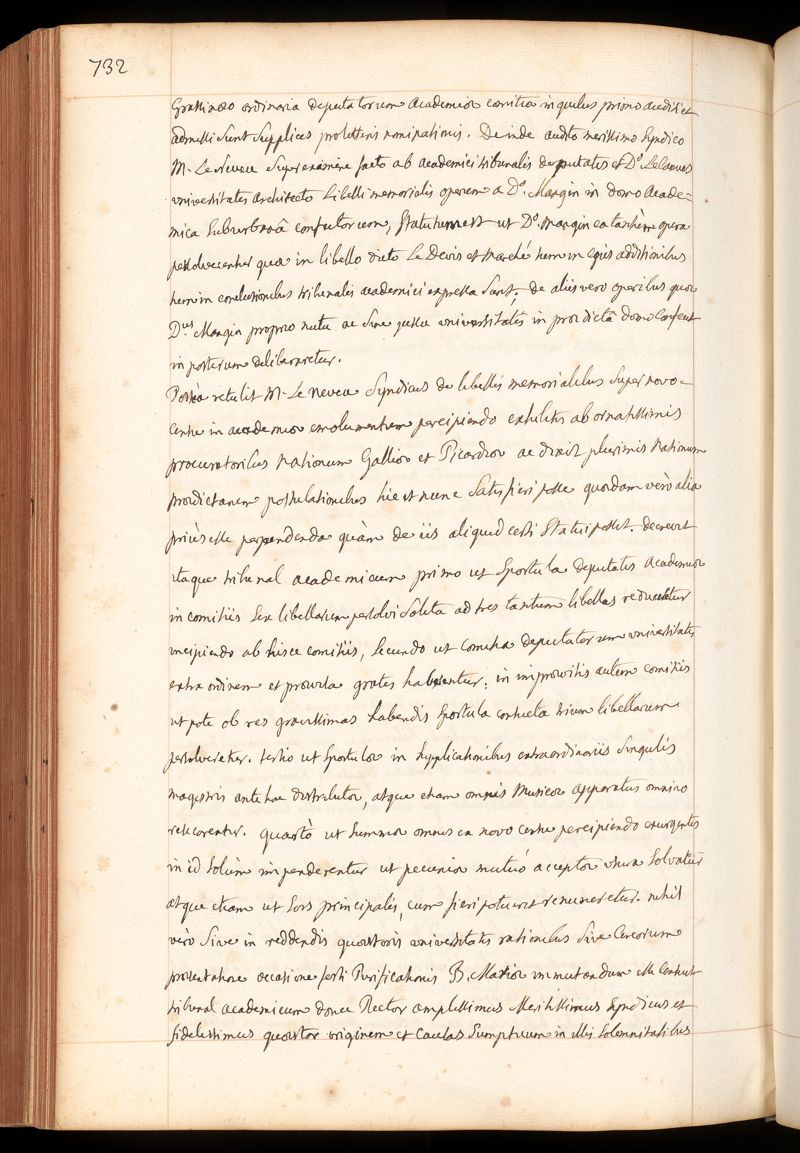 732
Grassinæo ordinaria deputatorum Academiæ comitia in quibus primo auditi et
admissi sunt supplices pro litteris nominationis. Deinde audito meritissimo Syndico
M. Le Neveu super examine facto ab academici tribunalis deputatis et D.º
universitatis architecto libelli memorialis operum a D.º Mangin in domo Acade=
mica suburbanâ confectorum, Statutum est ut D.º Mangin ea tantùm opera
persolverentur quæ in libello dicto Le Devis et Marché tum in ejus additionibus
tum in conclusionibus tribunalis academici expressa sunt; de aliis vero operibus quæ
D.us Mangin proprio nutu ac sine jussu universitatis in prædictâ domo
in posterum deliberaretur.
Posteà retulit M. Le Neveu Syndicus de libellis memorialibus super novo
censu in academiæ emolumentum percipiendo exhibitis ab ornatissimis
procuratoribus nationum Galliæ et Picardiæ ac dixit plurimis nationum
prædictarum postulationibus hic et nunc satisfieri posse quædam verò alia
priùs esse perpendenda quàm de iis aliquid certi statui posset. decrevit
itaque tribunal academicum primo ut sportula deputatis Academiæ
in comitiis sex libellarum persolvi solita ad tres tantum libellas reduceretur
incipiendo ab hisce comitiis, secundo ut comitia deputatorum universitatis
extra ordinem et provisa gratis haberentur; in improvisis autem comitiis
ut pote ob res gravissimas habendis sportula consueta trium libellarum
persolveretur. tertio ut sportulæ in supplicationibus extraordinariis singulis
magistris antehac distributæ, atque etiam omnis musicæ apparatus omnino
resecarentur. quartò ut summæ omnes ex novo censu percipiendo exurgentes
in id solùm impenderentur ut pecuniæ mutuò acceptæ usura solvatur
atque etiam ut sors principalis, cum fieri potuerit renumeretur. nihil
vérò sive in reddendis quæstoris universitatis rationibus sive cereorum
præsentatione occasione festi Purificationis B. Mariæ immutandum esse censuit
tribunal academicum donec Rector amplissimus Meritissimus Syndicus et
fidelissimus quæstor originem et causas sumptuum in illis solemnitatibus